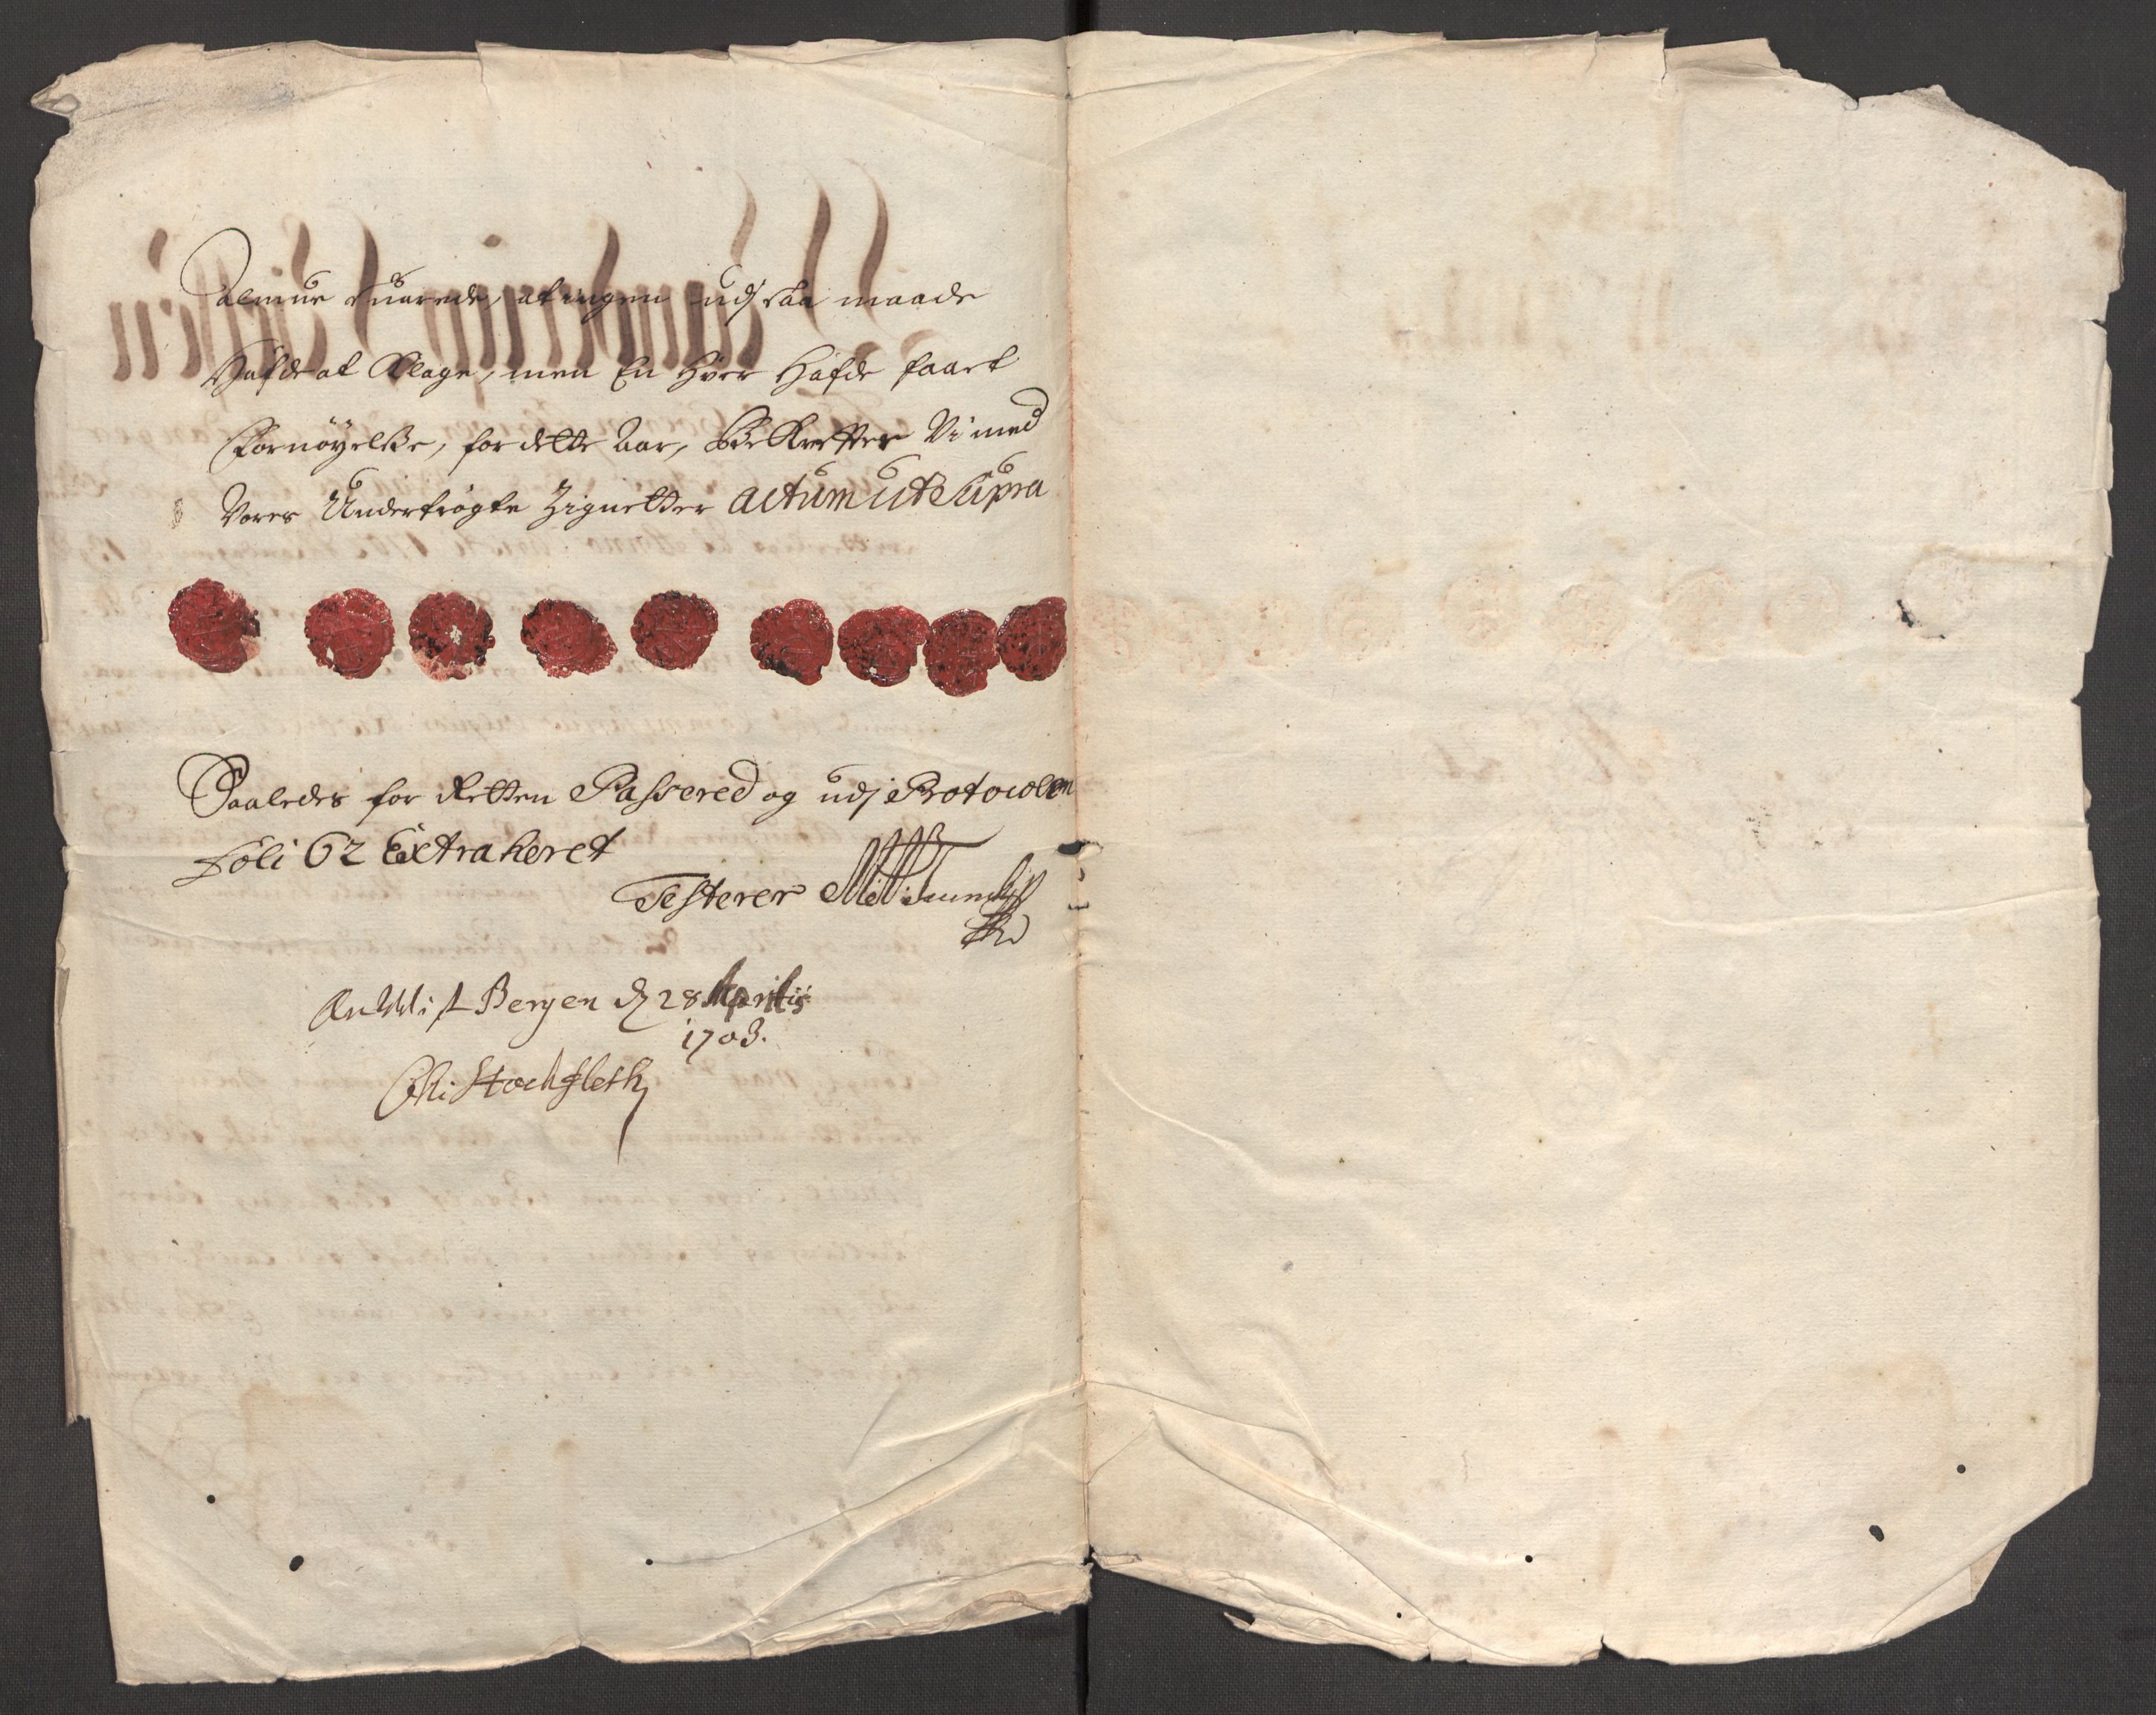 Almue suarede, at ingen udj saa maade
Hafde at Klage, men En Hver Hafde faaet
Fornöyelse, for dette Aar, Bekrefter Vi med
Vores Undertrögte Zignetter Actum ut Supra
Saaledes for Retten Passered og udj Protocollen
Foli 62 Extraheret
Testerer
Bergen d 28 Aprilis
1703.
Stockfleth